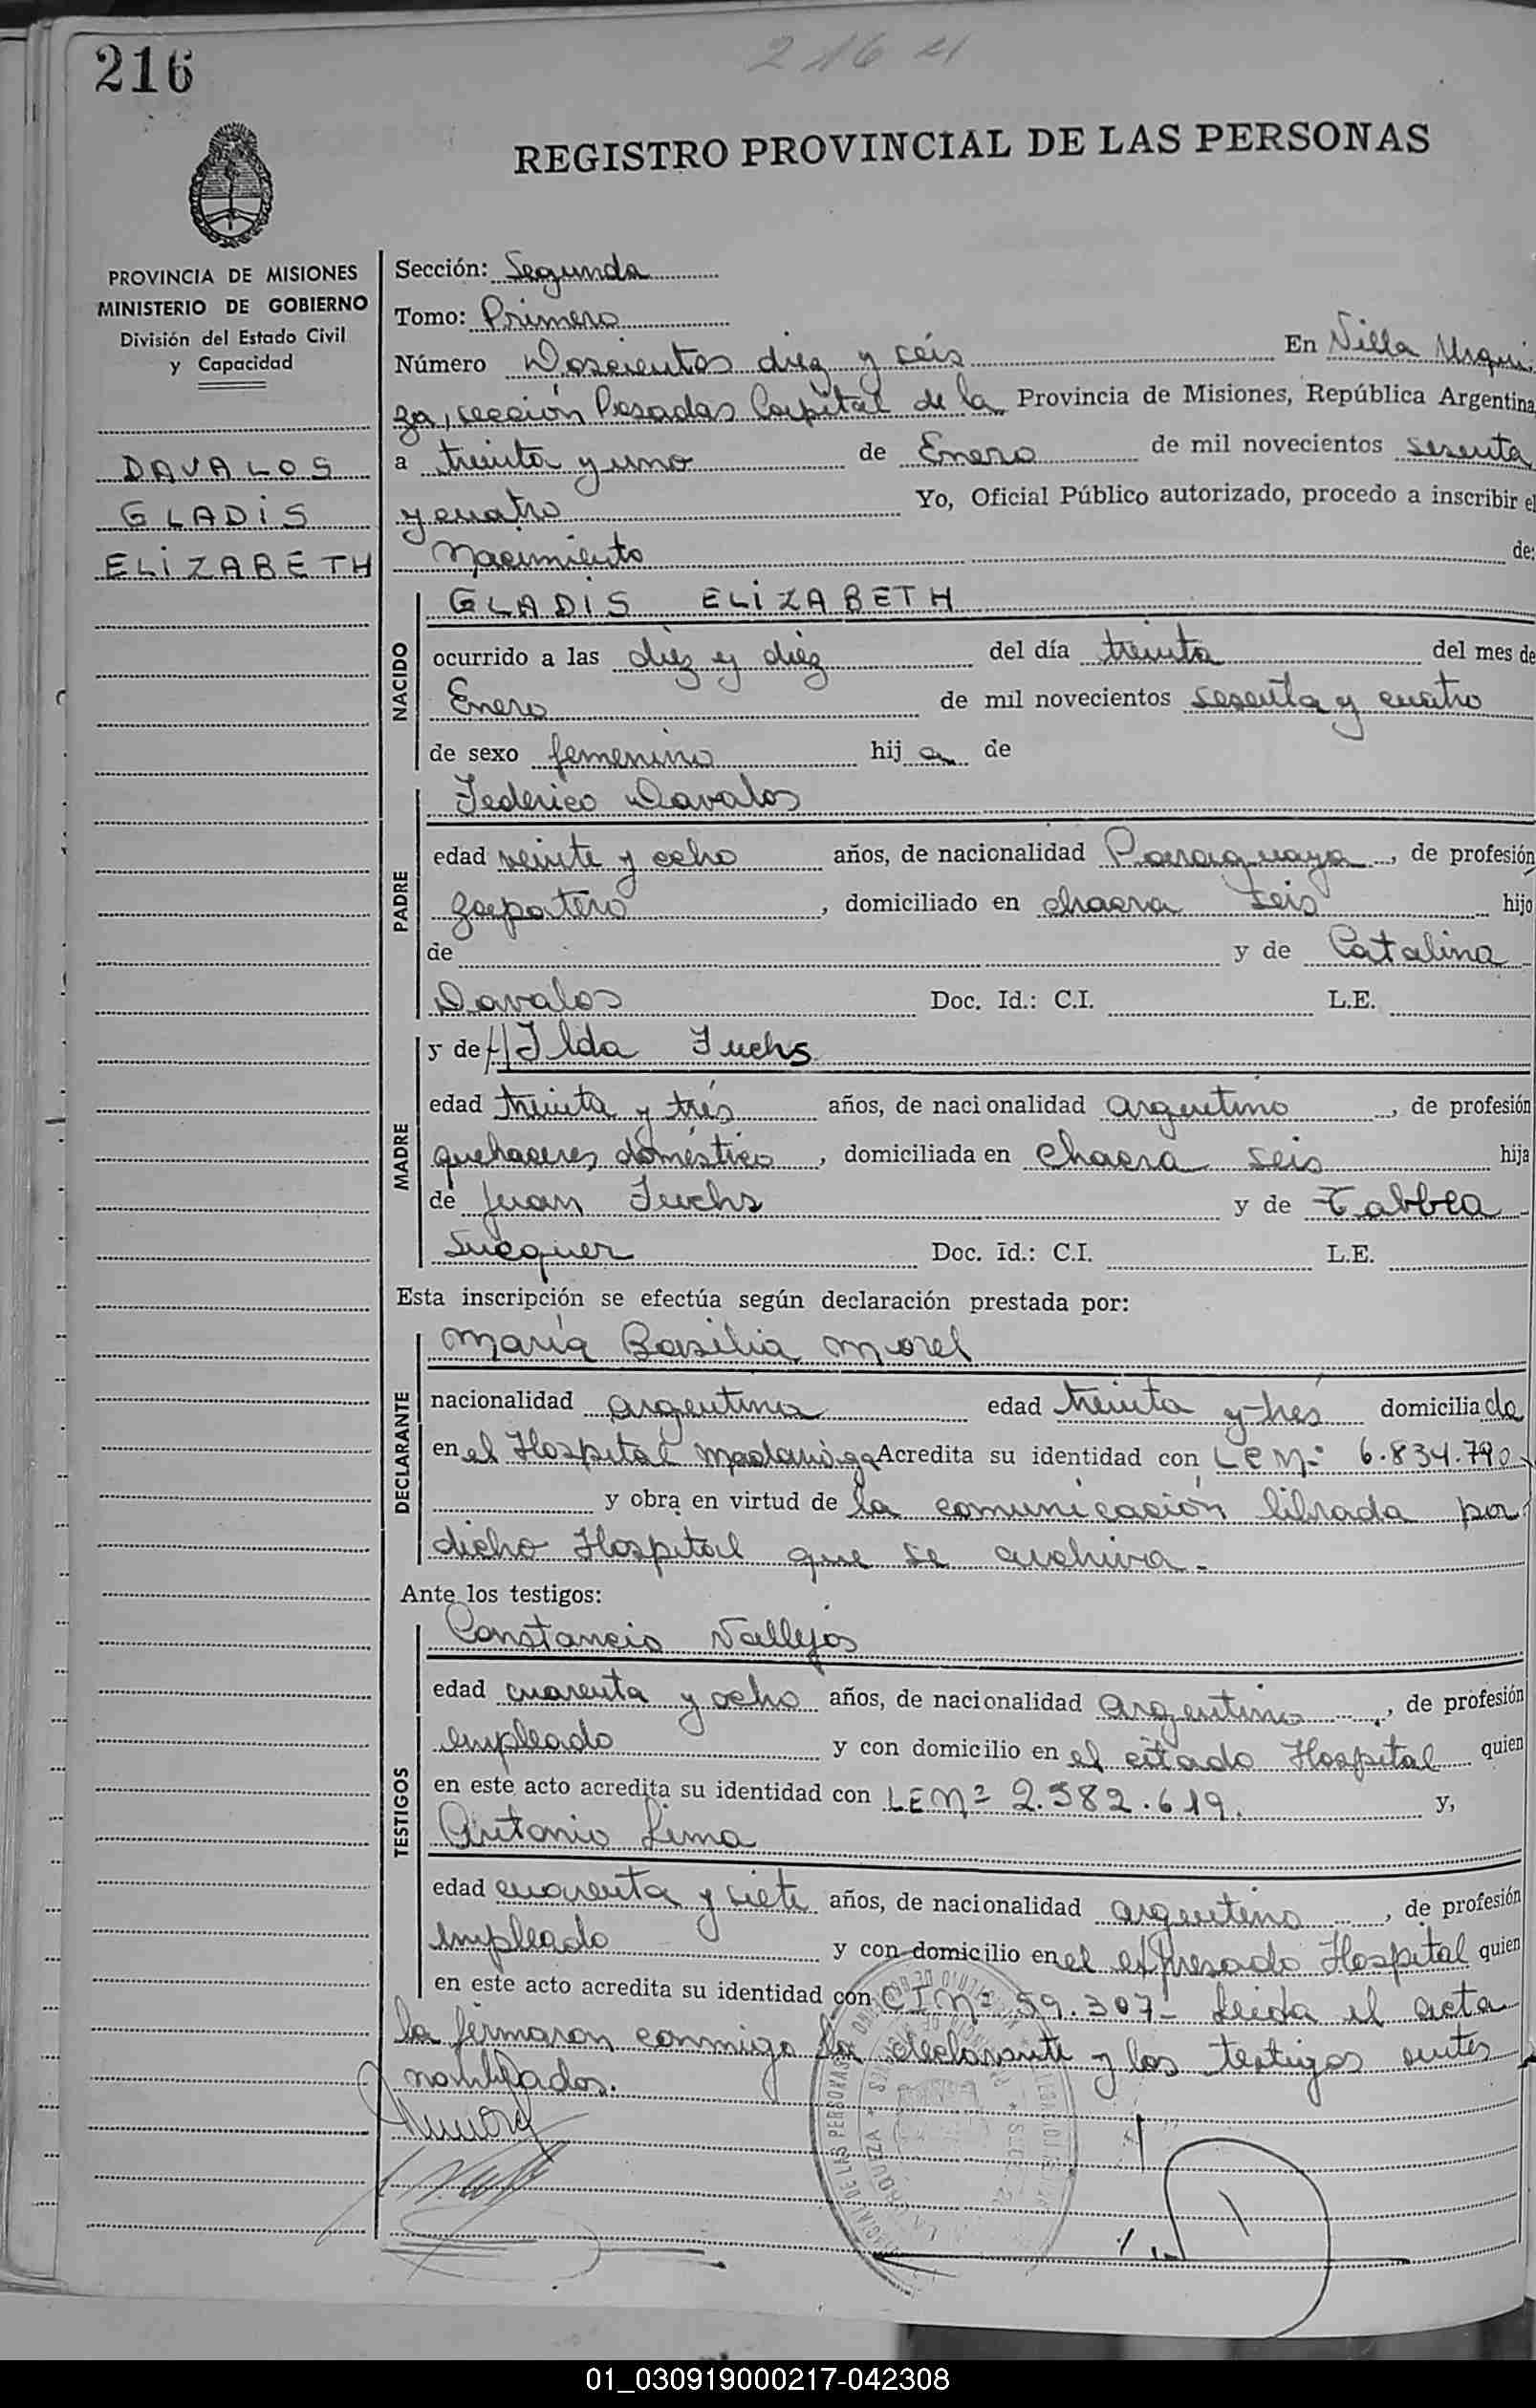 216
216
REGISTRO PROVINCIAL DE LAS PERSONAS
PROVINCIA DE MISIONES
MINISTERIO DE GOBIERNO
División del Estado Civil
y Capacidad
DAVALOS
GLADIS
ELIZABETH
Sección: Segunda
Tomo: Primero
Número Doscientos diez y seis En Villa Urqui
za, sección Posadas Capital de la Provincia de Misiones, República Argentina
a treinta y uno de Enero de mil novecientos sesenta
y cuatro Yo, Oficial Público autorizado, procedo a inscribir el
Nacimiento de:
NACIDO
GLADIS ELIZABETH
ocurrido a las diez y diez del día treinta del mes de
Enero de mil novecientos sesenta y cuatro
de sexo femenino hij a de
PADRE
Federico Davalos
edad veinte y ocho años, de nacionalidad Paraguaya, de profesión
zapatero, domiciliado en chacra seis hijo
de y de Catalina
Davalos Doc. Id.: C.I. L.E.
MADRE
y de Ilda Fuchs
edad treinta y trés años, de nacionalidad argentino, de profesión
quehaceres doméstico, domiciliada en chacra seis hija
de Juan Fuchs y de Tabbea
Sucquer Doc. Id.: C.I. L.E.
Esta inscripción se efectúa según declaración prestada por:
DECLARANTE
María Basilia Morel
nacionalidad argentina edad treinta y trés domiciliada
en el Hospital Madariaga Acredita su identidad con LC Nº 6.834.790
y obra en virtud de la comunicación librada por
dicho Hospital que se archiva.
Ante los testigos:
TESTIGOS
Constancio Vallejos
edad cuarenta y ocho años, de nacionalidad argentino, de profesión
empleado y con domicilio en el citado Hospital quien
en este acto acredita su identidad con LE Nº 2.382.619. y,
Antonio Lima
edad cuarenta y siete años, de nacionalidad argentino, de profesión
empleado y con domicilio en el expresado Hospital quien
en este acto acredita su identidad con CI Nº 59.307- Leida el acta
la firmaron conmigo la declarante y los testigos antes
nombrados.
01_030919000217-042308